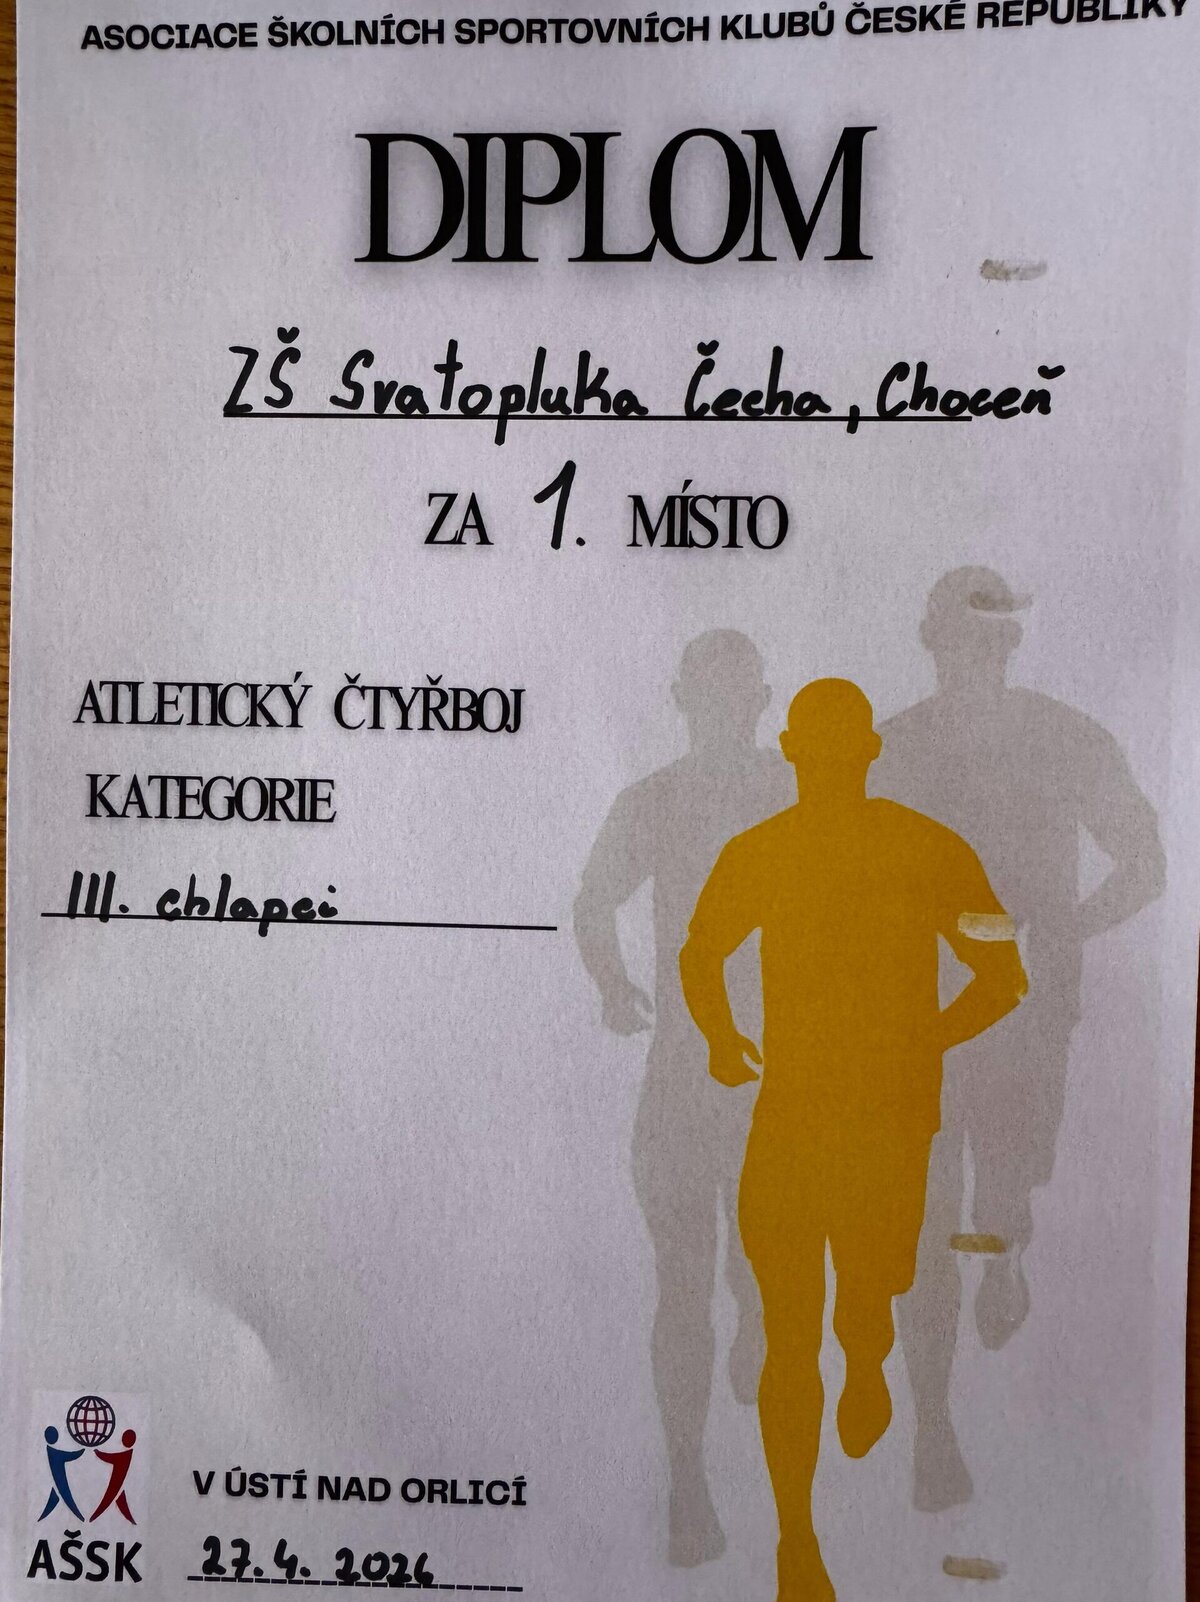 ASOCIACE ŠKOLNÍCH SPORTOVNÍCH KLUBŮ ČESKÉ REPUBLIKY
DIPLOM
ZŠ Svatopluka Čecha, Choceň
ZA 1. MÍSTO
ATLETICKÝ ČTYŘBOJ
KATEGORIE
III. chlapci
V ÚSTÍ NAD ORLICÍ
AŠSK
27.4. 2026